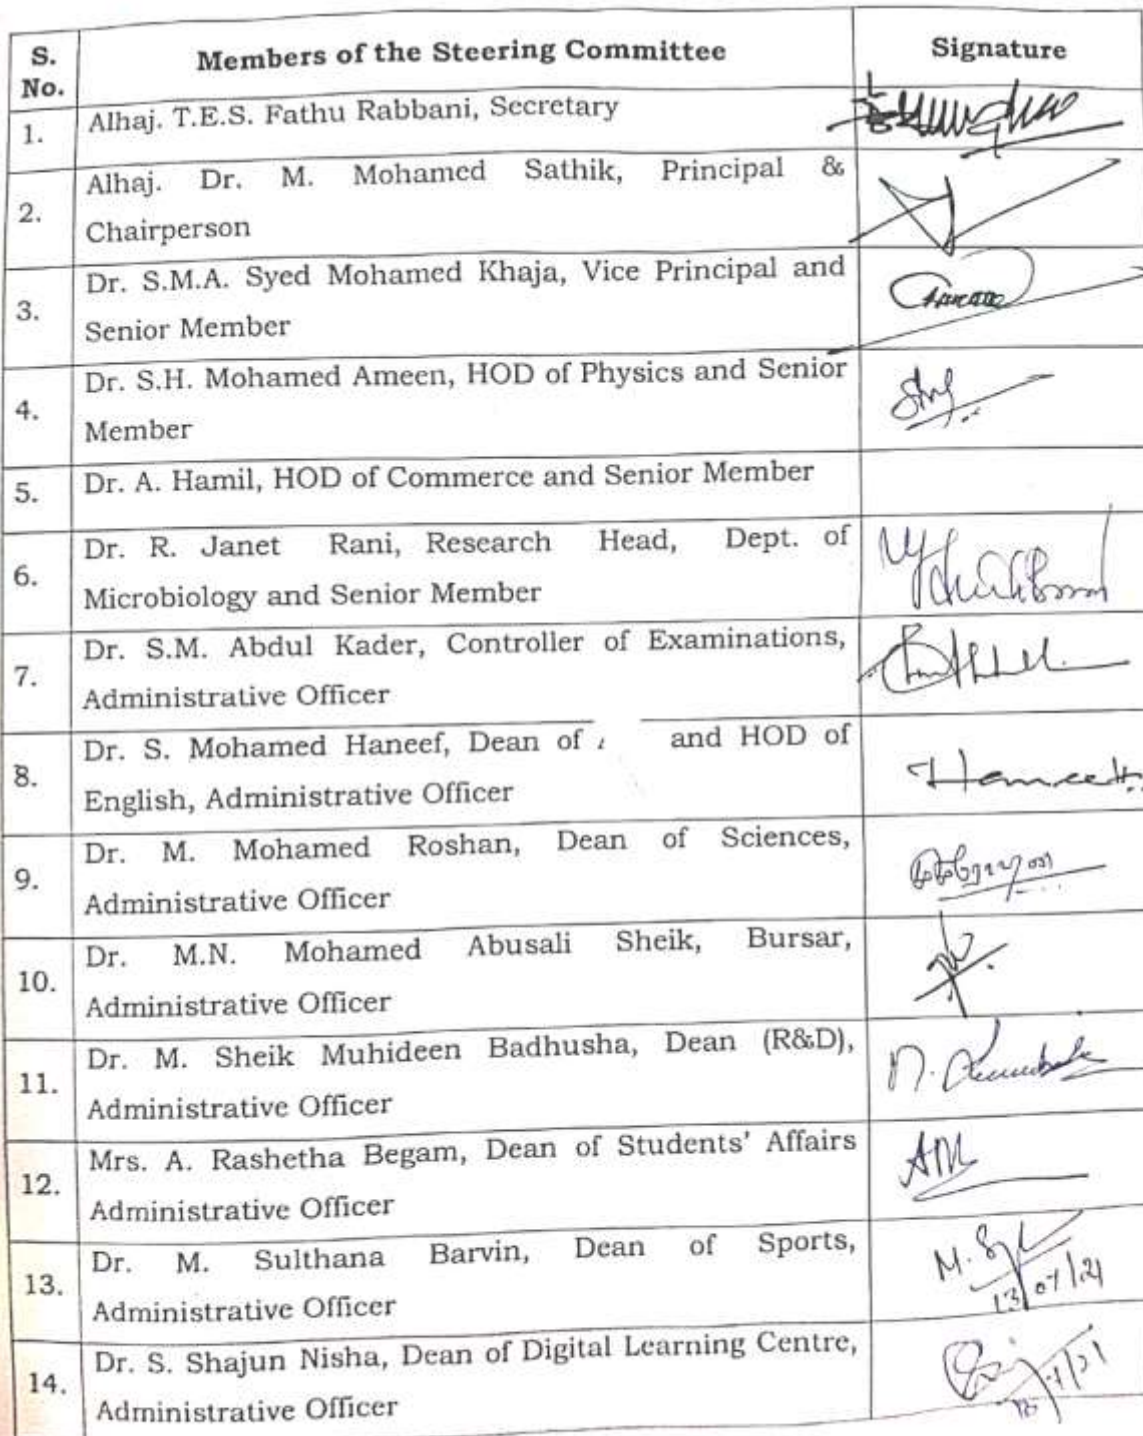 S. No. Members of the Steering Committee Signature
1. Alhaj. T.E.S. Fathu Rabbani, Secretary
2. Alhaj. Dr. M. Mohamed Sathik, Principal &
Chairperson
3. Dr. S.M.A. Syed Mohamed Khaja, Vice Principal and
Senior Member
4. Dr. S.H. Mohamed Ameen, HOD of Physics and Senior
Member
5. Dr. A. Hamil, HOD of Commerce and Senior Member
6. Dr. R. Janet Rani, Research Head, Dept. of
Microbiology and Senior Member
7. Dr. S.M. Abdul Kader, Controller of Examinations,
Administrative Officer
8. Dr. S. Mohamed Haneef, Dean of and HOD of
English, Administrative Officer
9. Dr. M. Mohamed Roshan, Dean of Sciences,
Administrative Officer
10. Dr. M.N. Mohamed Abusali Sheik, Bursar,
Administrative Officer
11. Dr. M. Sheik Muhideen Badhusha, Dean (R&D),
Administrative Officer
12. Mrs. A. Rashetha Begam, Dean of Students' Affairs
Administrative Officer
13. Dr. M. Sulthana Barvin, Dean of Sports,
Administrative Officer
13/07/21
14. Dr. S. Shajun Nisha, Dean of Digital Learning Centre,
Administrative Officer